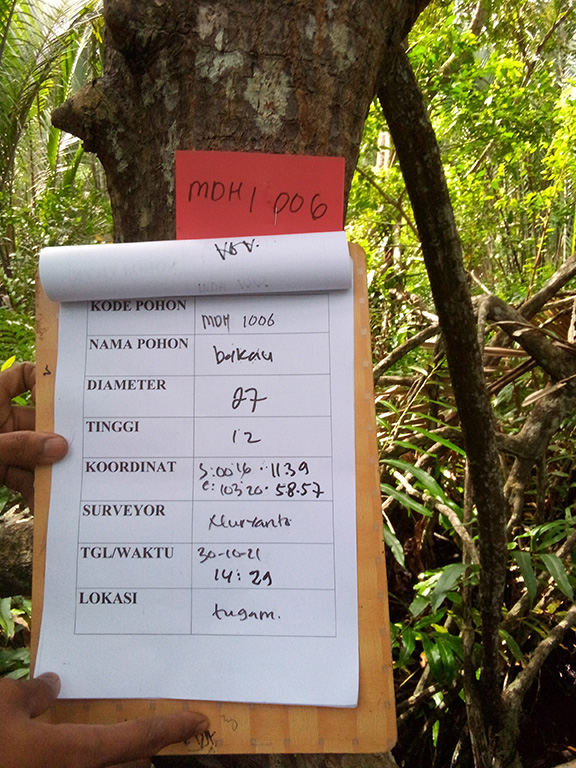 MDH1 006
KODE POHON MDH 1006
NAMA POHON baikau
DIAMETER 27
TINGGI 12
KOORDINAT S:00'16'.1139
e:103'20'.58.57
SURVEYOR Nuryanto
TGL/WAKTU 30-10-21
14:29
LOKASI tugam.